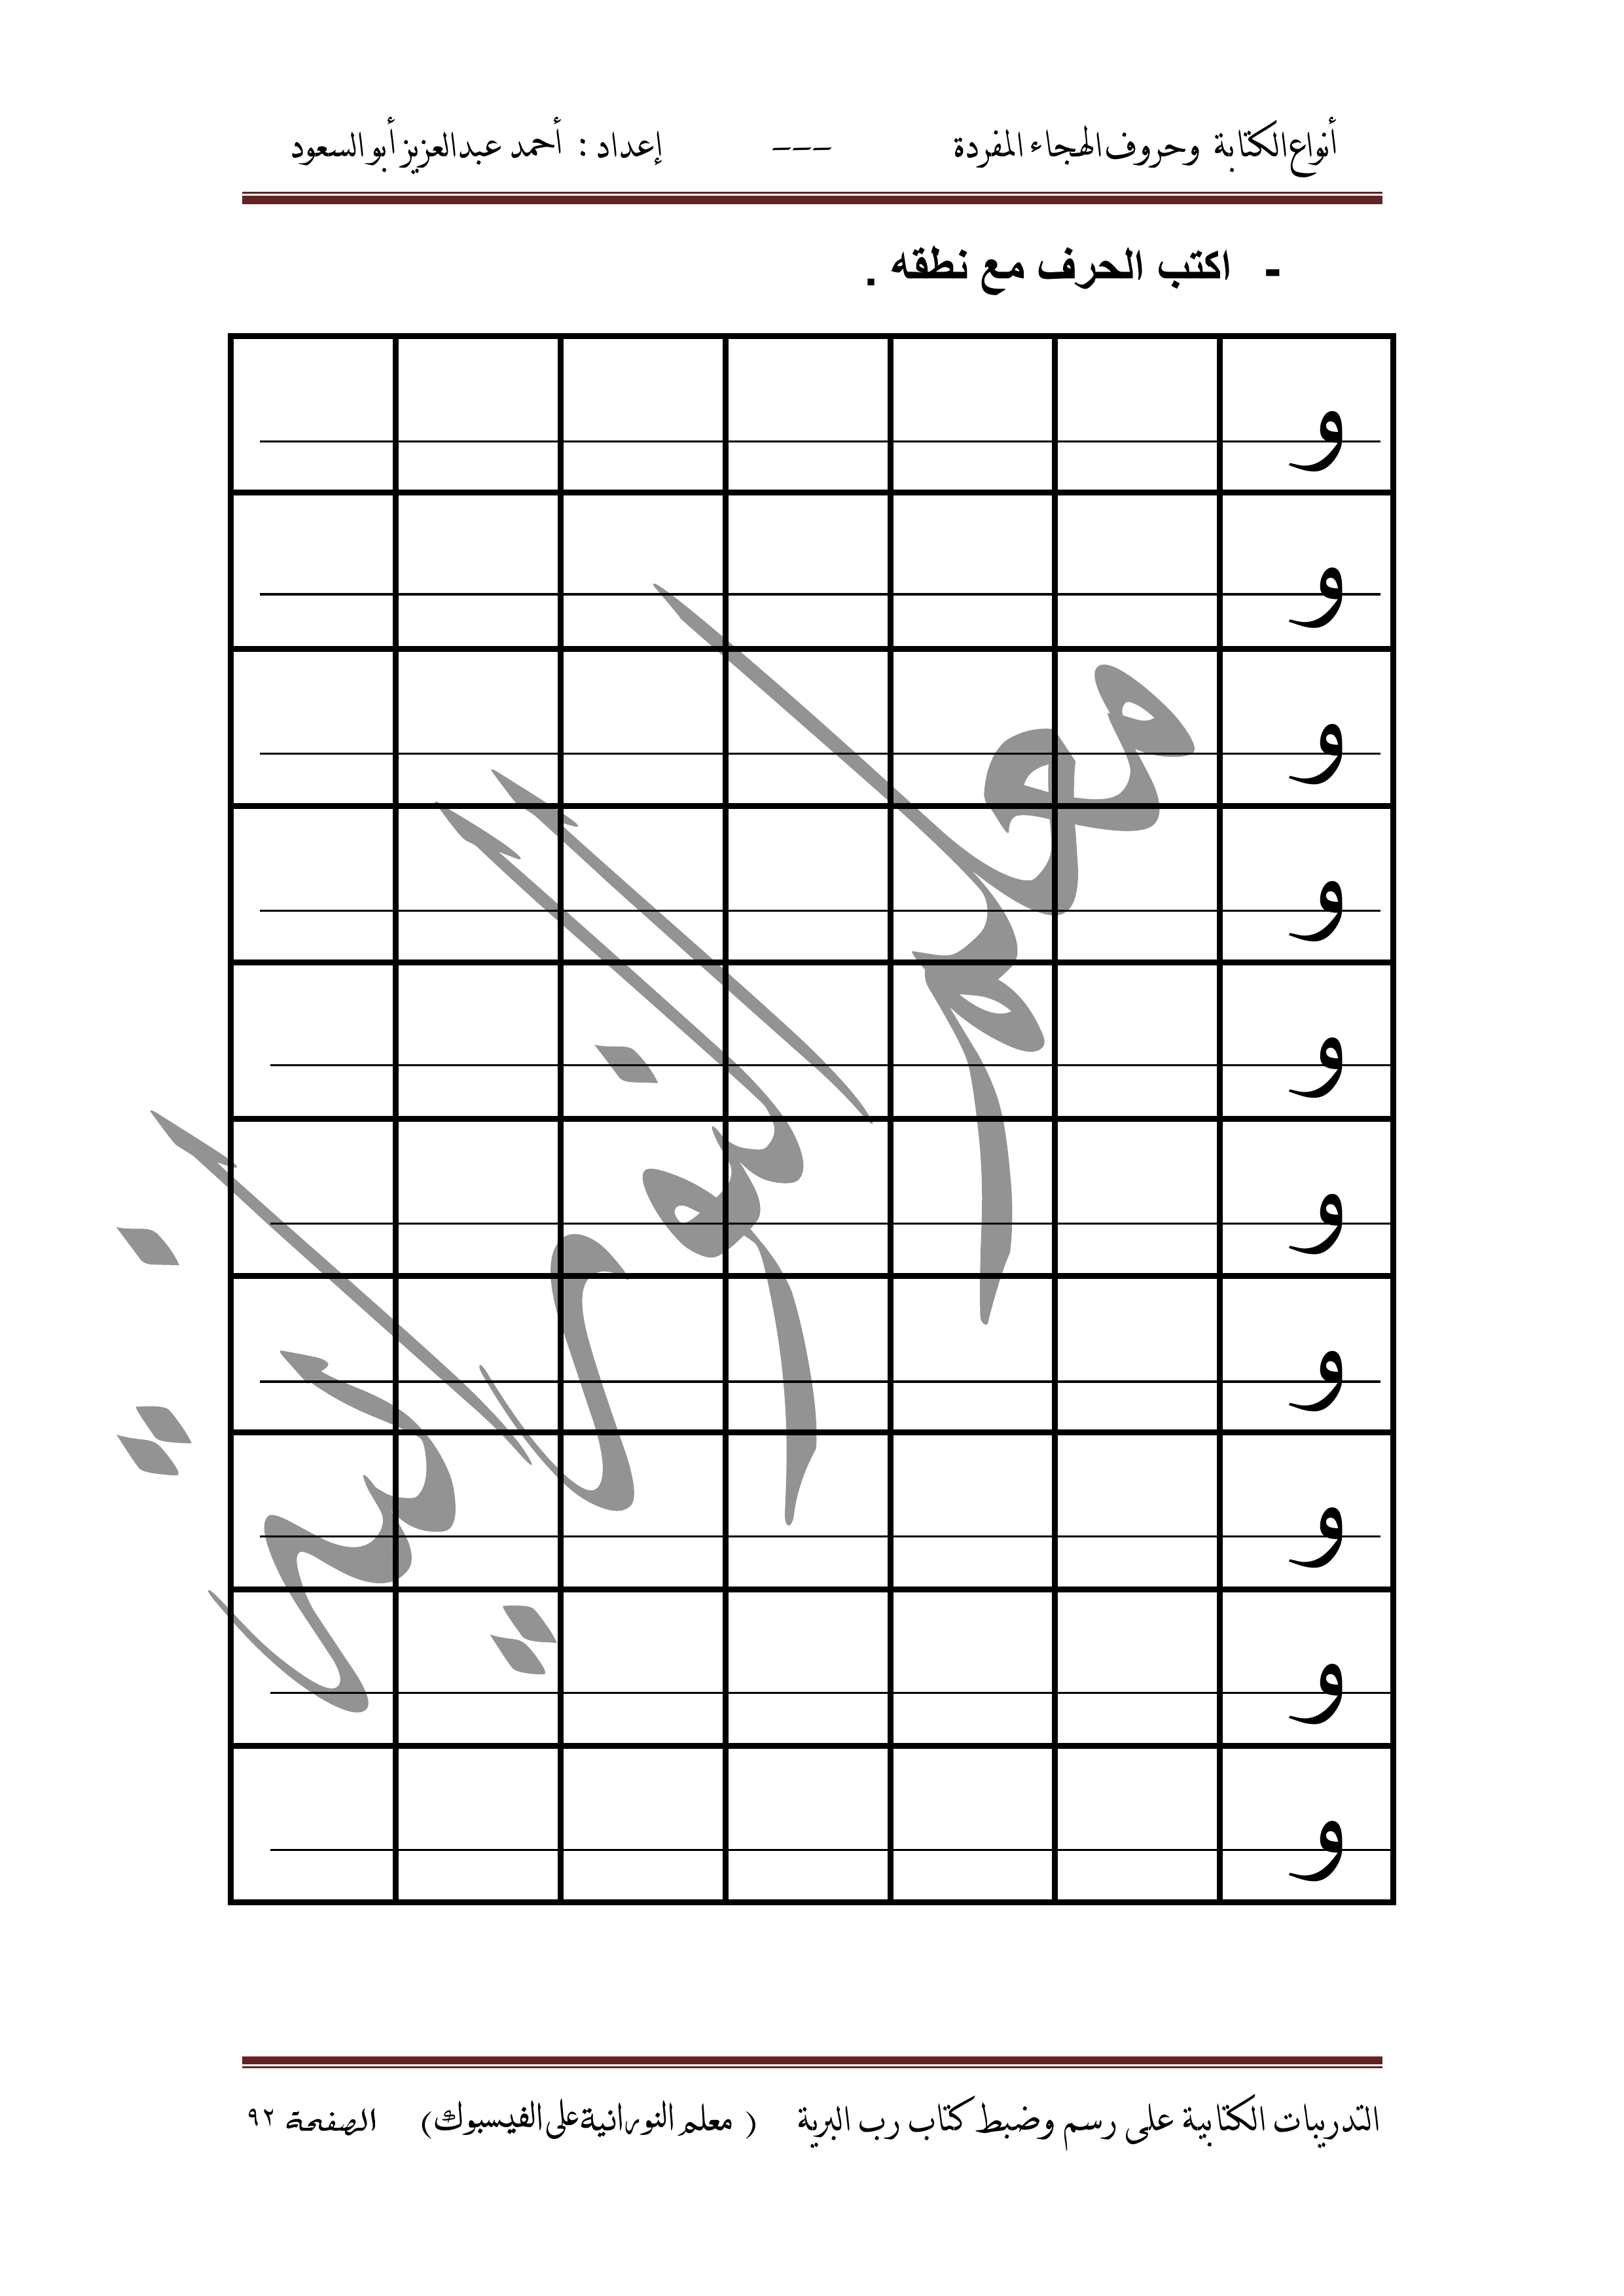 أنواع الكتابة وحروف الهجاء المفردة --- إعداد : أحمد عبدالعزيز أبوالسعود
- اكتب الحرف مع نطقه .
و
و
و
و
و
و
و
و
و
و
معلم النورانية
التدريبات الكتابية على رسم وضبط كتاب رب البرية ( معلم النورانية على الفيسبوك) الصفحة ٩٢